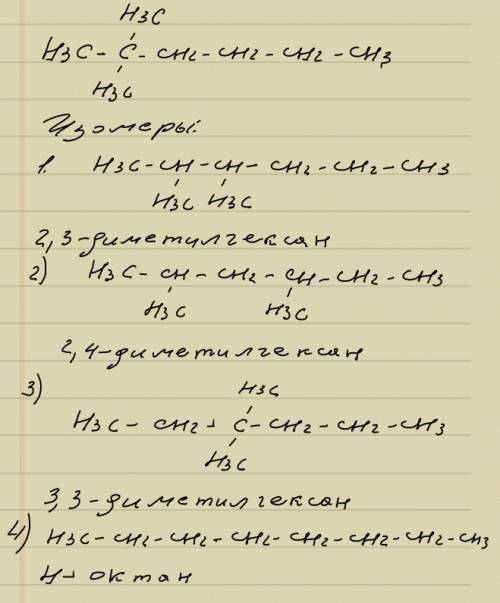 H3C
H3C - C - CH2 - CH2 - CH2 - CH3
H3C
Изомеры:
1. H3C - CH - CH - CH2 - CH2 - CH3
H3C H3C
2,3-диметилгексан
2) H3C - CH - CH2 - CH - CH2 - CH3
H3C H3C
2,4-диметилгексан
3) H3C
H3C - CH2 - C - CH2 - CH2 - CH3
H3C
3,3-диметилгексан
4) H3C - CH2 - CH2 - CH2 - CH2 - CH2 - CH2 - CH3
Н-октан